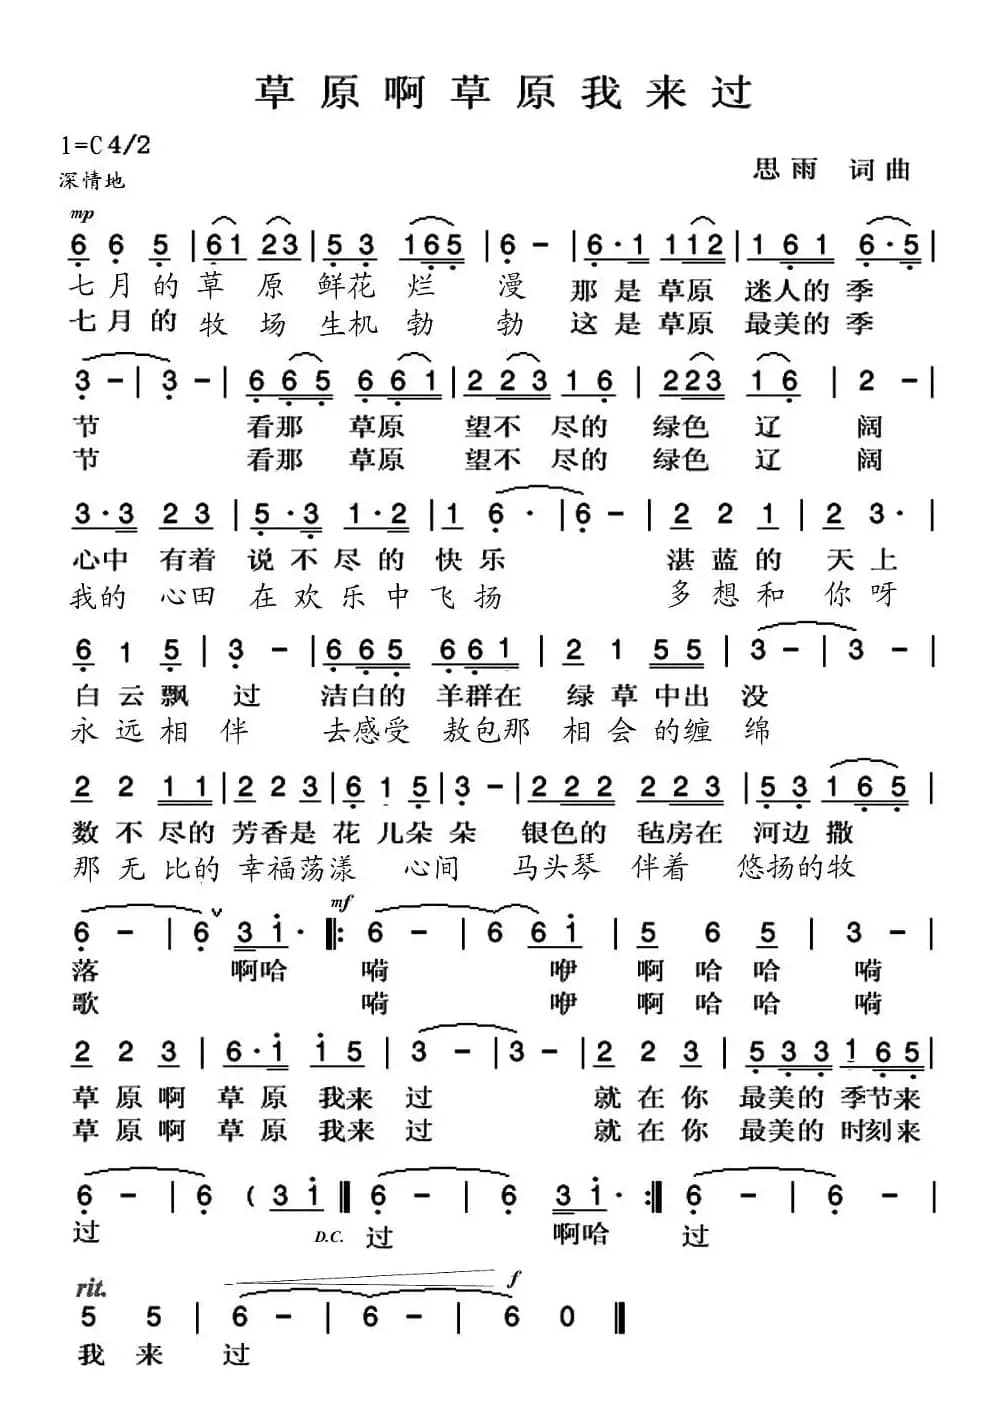 草原啊草原我来过
1=C 4/2
思雨 词曲
深情地
mp
6 6 5 | 61 23 | 5 3 165 | 6 - | 6·1 112 | 1 61 6·5 |
七月的草原鲜花烂漫 那是草原迷人的季
七月的牧场生机勃勃 这是草原最美的季
3 - | 3 - | 665 661 | 223 16 | 223 16 | 2 - |
节 看那草原望不尽的绿色辽阔
节 看那草原望不尽的绿色辽阔
3·3 23 | 5·3 1·2 | 1 6· | 6 - | 2 2 1 | 2 3· |
心中有着说不尽的快乐 湛蓝的天上
我的心田在欢乐中飞扬 多想和你呀
6 1 5 | 3 - | 665 661 | 2 1 55 | 3 - | 3 - |
白云飘过 洁白的羊群在绿草中出没
永远相伴 去感受敖包那相会的缠绵
2 2 11 | 2 2 3 | 6 1 5 | 3 - | 222 222 | 5 3 165 |
数不尽的芳香是花儿朵朵 银色的毡房在河边撒
那无比的幸福荡漾心间 马头琴伴着悠扬的牧
mf
6 - | 6 3 1· ‖: 6 - | 6 61 | 5 6 5 | 3 - |
落 啊哈嗬 咿啊哈哈嗬
歌 嗬 咿啊哈哈嗬
2 2 3 | 6·1 15 | 3 - | 3 - | 2 2 3 | 533 165 |
草原啊草原我来过 就在你最美的季节来
草原啊草原我来过 就在你最美的时刻来
6 - | 6 ( 31 ‖ 6 - | 6 31· :‖ 6 - | 6 - |
过 D.C. 过 啊哈 过
rit.
f
5 5 | 6 - | 6 - | 6 0 ‖
我来过